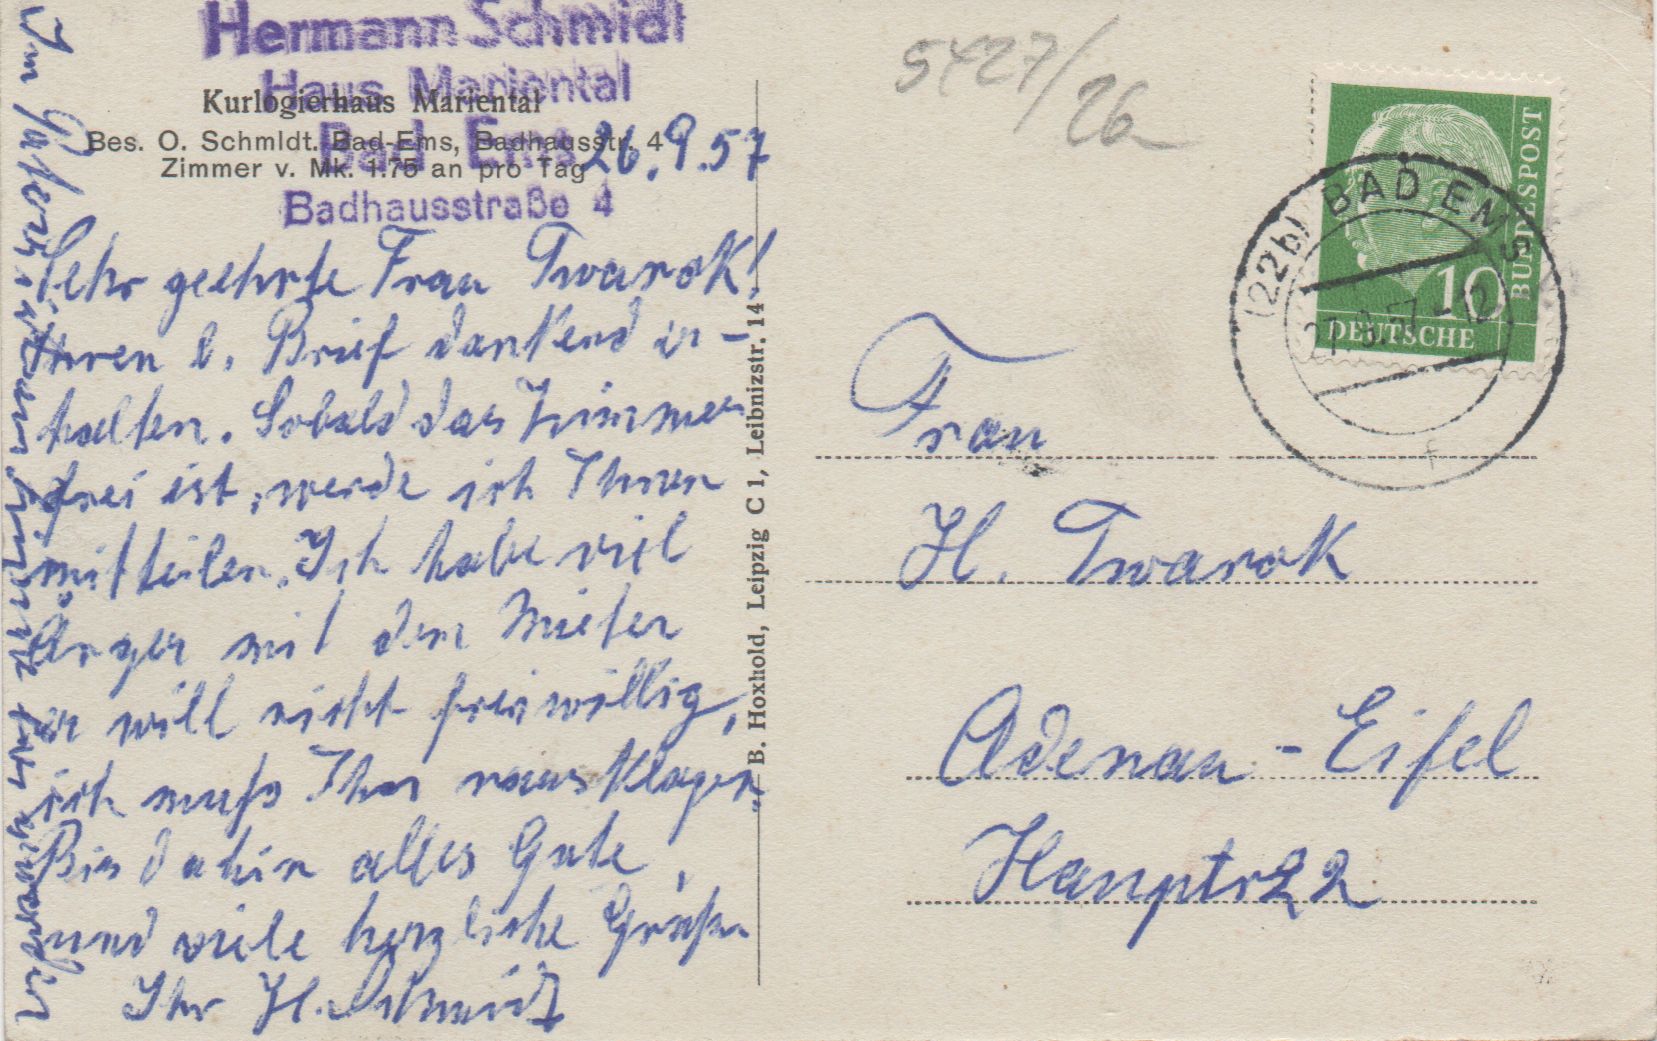 Hermann Schmidt
Haus Mariental
Bad Ems
Badhausstraße 4
Kurlogierhaus Mariental
Bes. O. Schmidt. Bad-Ems, Badhausstr. 4
Zimmer v. Mk. 1.75 an pro Tag
26.9.57
Sehr geehrte Frau Twarok!
Ihren l. Brief dankend er-
halten. Sobald das Zimmer
frei ist, werde ich Ihnen
mitteilen. Ich habe viel
Ärger mit dem Mieter
er will nicht freiwillig,
ich muß Ihn rausklagen.
Bis dahin alles Gute,
und viele herzliche Grüße
Ihr H. Schmidt
Im
B. Hoxhold, Leipzig C 1, Leibnizstr. 14
5427/26
DEUTSCHE
BUNDESPOST
10
(22b) BAD EMS
27.9.57-12
f
Frau
H. Twarok
Adenau - Eifel
Hauptr 22